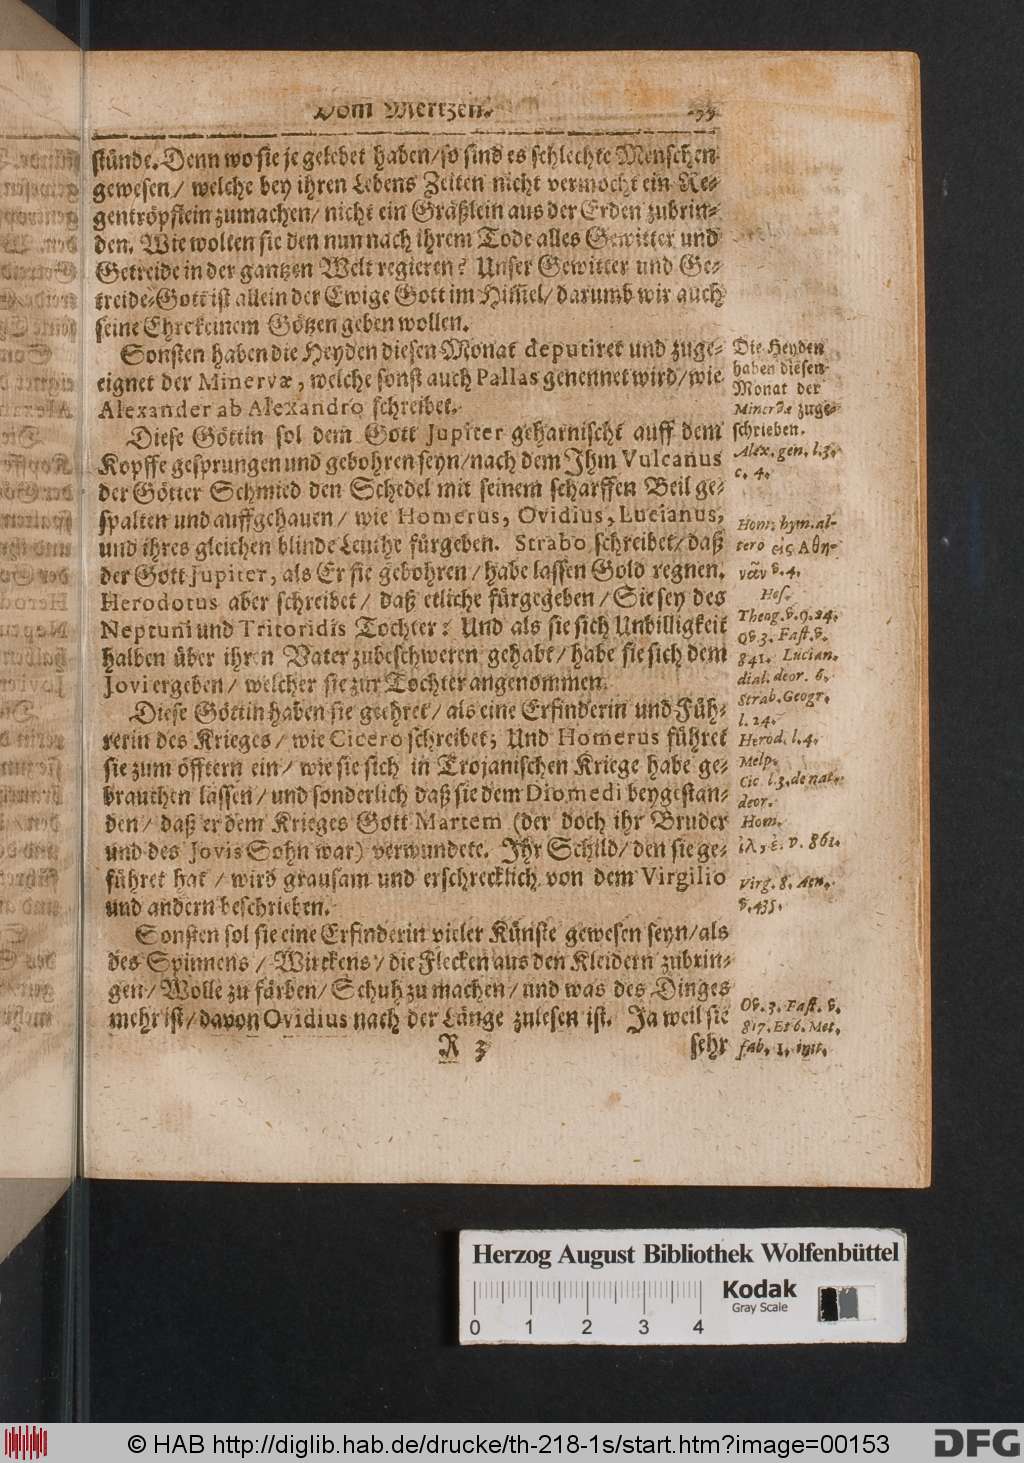 Vom Mertzen.
stünde. Denn wo sie je gelebet haben/ so sind es schlechte Menschen
gewesen/ welche bey ihren Lebens Zeiten nicht vermocht ein Re-
gentröpflein zumachen/ nicht ein Gräßlein aus der Erden zubrin-
den. Wie wolten sie den nun nach ihrem Tode alles Gewitter und
Getreide in der gantzen Welt regieren? Unser Gewitter und Ge-
treide-Gott ist allein der Ewige Gott im Him̃el/ darumb wir auch
seine Ehre keinem Götzen geben wollen.
Sonsten haben die Heyden diesen Monat deputiret und zuge-
eignet der Minervæ, welche sonst auch Pallas genennet wird/ wie
Alexander ab Alexandro schreibet.
Diese Göttin sol dem Gott Jupiter geharnischt auff dem
Kopffe gesprungen und gebohren seyn/ nach dem Ihm Vulcanus
der Götter Schmied den Schedel mit seinem scharffen Beil ge-
spalten und auffgehauen/ wie Homerus, Ovidius, Lucianus,
und ihres gleichen blinde Leuthe fürgeben. Strabo schreibet/ daß
der Gott Jupiter, als Er sie gebohren/ habe lassen Gold regnen.
Herodotus aber schreibet/ daß etliche fürgegeben/ Sie sey des
Neptuni und Tritoridis Tochter: Und als sie sich Unbilligkeit
halben über ihren Vater zubeschweren gehabt/ habe sie sich dem
Jovi ergeben/ welcher sie zur Tochter angenommen.
Diese Göttin haben sie geehret/ als eine Erfinderin und Füh-
rerin des Krieges/ wie Cicero schreibet; Und Homerus führet
sie zum öfftern ein/ wie sie sich in Trojanischen Kriege habe ge-
brauchen lassen/ und sonderlich daß sie dem Diomedi beygestan-
den/ daß er dem Krieges Gott Martem (der doch ihr Bruder
und des Jovis Sohn war) verwundete. Ihr Schild/ den sie ge-
führet hat/ wird grausam und erschrecklich von dem Virgilio
und andern beschrieben.
Sonsten sol sie eine Erfinderin vieler Künste gewesen seyn/ als
des Spinnens/ Wirckens/ die Flecken aus den Kleidern zubrin-
gen/ Wolle zu färben/ Schuh zu machen/ und was des Dinges
mehr ist/ davon Ovidius nach der Länge zulesen ist. Ja weil sie
R 3 sehr
Die Heyden
haben diesen
Monat der
Minervæ zuge-
schrieben.
Alex. gen. l. 3.
c. 4.
Hom. hym. al-
tero εἰς Ἀθη-
νᾶν v. 4.
Hes.
Theog. v. 9. 24.
Ov. 3. Fast. v.
841. Lucian.
dial. deor. 6.
Strab. Geogr.
l. 24.
Herod. l. 4.
Melp.
Cic. l. 3. de nat.
deor.
Hom.
ἰλ, έ. v. 861.
Virg. 8. Aen.
v. 435.
Ov. 3. Fast. v.
817. Et 6. Met.
fab. 1. init.
Herzog August Bibliothek Wolfenbüttel
Kodak
Gray Scale
0 1 2 3 4
© HAB http://diglib.hab.de/drucke/th-218-1s/start.htm?image=00153
DFG